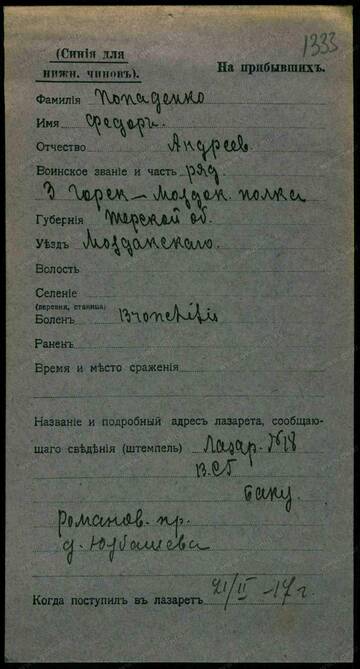 1333
(Синія для
нижн. чиновъ).
На прибывшихъ.
Фамилія Попаденко
Имя Федоръ.
Отчество Андреев.
Воинское званіе и часть ряд.
3 Горск–Моздок. полка
Губернія Терской об.
Уѣздъ Моздокскаго.
Волость
Селеніе
(деревня, станица)
Боленъ Bronchitis
Раненъ
Время и мѣсто сраженія
Названіе и подробный адресъ лазарета, сообщаю-
щаго свѣдѣнія (штемпель) Лазар. №18
В.С.Г.
Баку.
Романов. пр.
д. Юзбашева
Когда поступилъ въ лазаретъ 21/II–17 г.